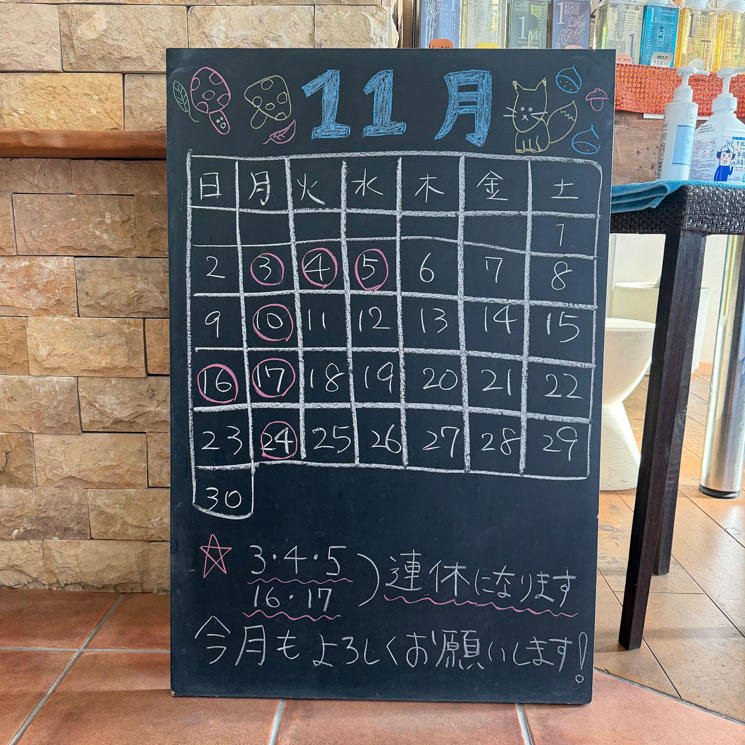 11月
日 月 火 水 木 金 土
1
2 3 4 5 6 7 8
9 10 11 12 13 14 15
16 17 18 19 20 21 22
23 24 25 26 27 28 29
30
3・4・5
16・17
)連休になります
今月もよろしくお願いします!